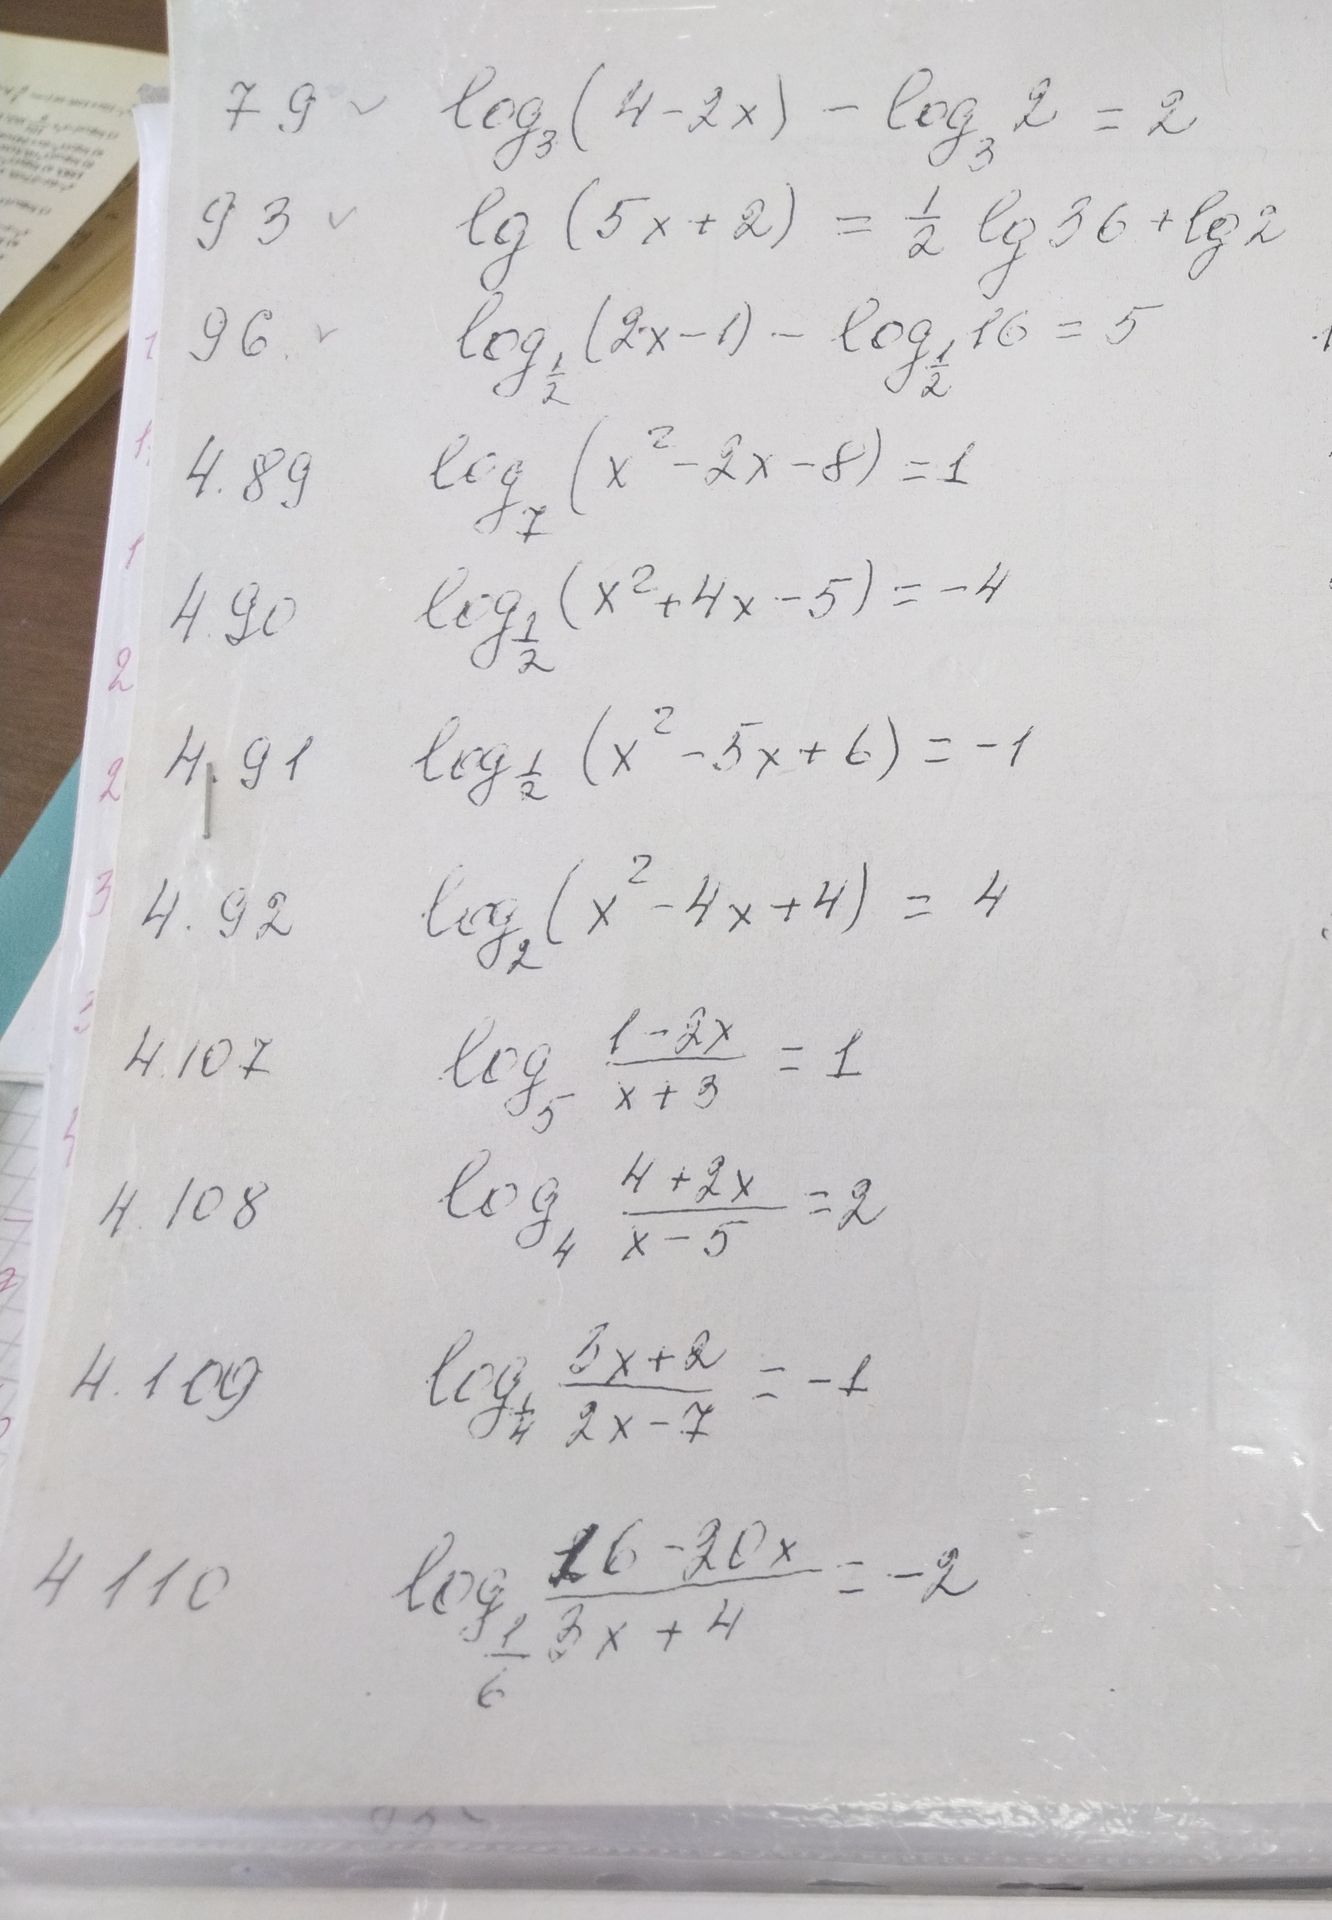 79 ✓ log₃(4-2x) - log₃2 = 2
93 ✓ lg(5x+2) = 1/2 lg36 + lg2
96. ✓ log_1/2(2x-1) - log_1/2 16 = 5
4.89 log₇(x²-2x-8) = 1
4.90 log_1/2(x²+4x-5) = -4
4.91 log_1/2(x²-5x+6) = -1
4.92 log₂(x²-4x+4) = 4
4.107 log₅ (1-2x)/(x+3) = 1
4.108 log₄ (4+2x)/(x-5) = 2
4.109 log_1/4 (3x+2)/(2x-7) = -1
4 110 log_1/6 (16-20x)/(3x+4) = -2